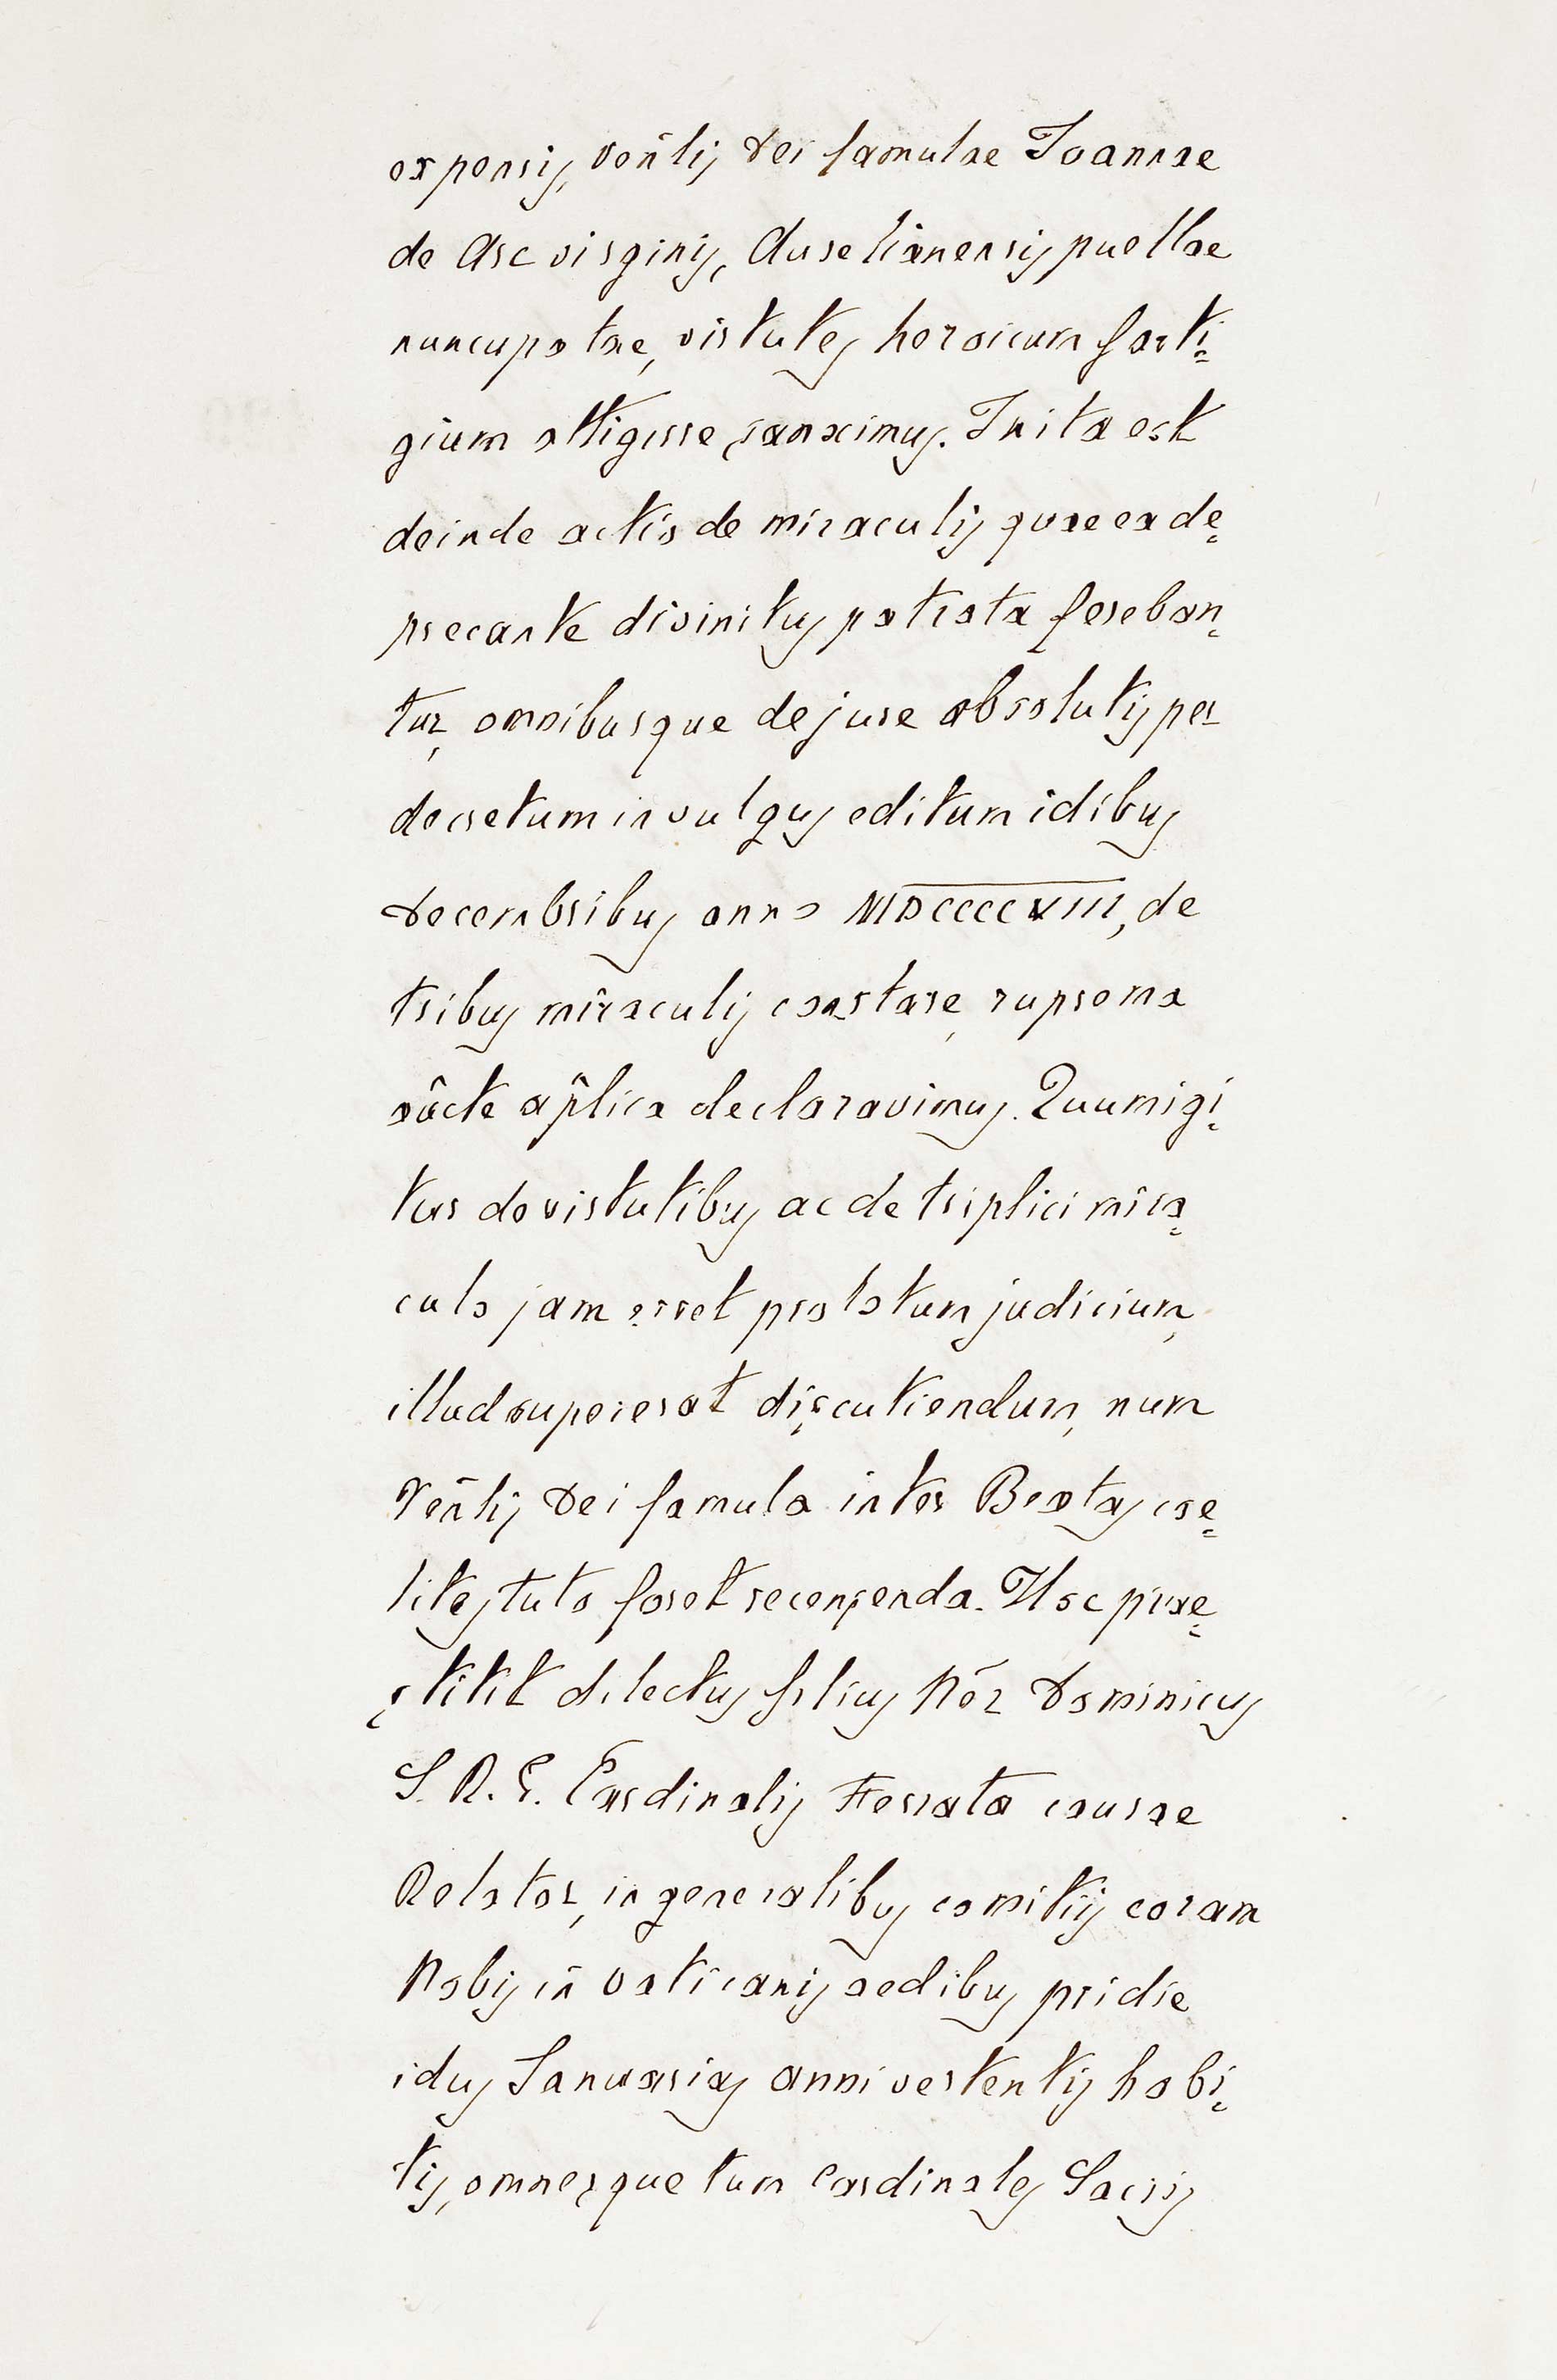 expensis, vēnlis Dei famulae Joannae
de Arc virginis, Aurelianensis puellae
nuncupatae, virtutes heroicum fasti=
gium attigisse, sanximus. Inita est
deinde actio de miraculis quae ea de=
precante divinitus patrata fereban=
tur, omnibusque de jure absolutis per
decretum in vulgus editum idibus
Decembribus anno MDCCCCVIII, de
tribus miraculis constare, suprema
aûcte aplica declaravimus. Quum igi=
tur de virtutibus ac de triplici mira=
culo jam esset prolatum judicium,
illud supererat discutiendum, num
Vēnlis Dei famula inter Beatas cae=
lites tuto foret recensenda. Hoc prae=
stitit dilectus filius Nōr Dominicus
S. R. E. Cardinalis Ferrata causae
Relator, in generalibus comitiis coram
Nobis in Vaticanis aedibus pridie
idus Januarias anni vertentis habi=
tis, omnesque tum Cardinales Sacris